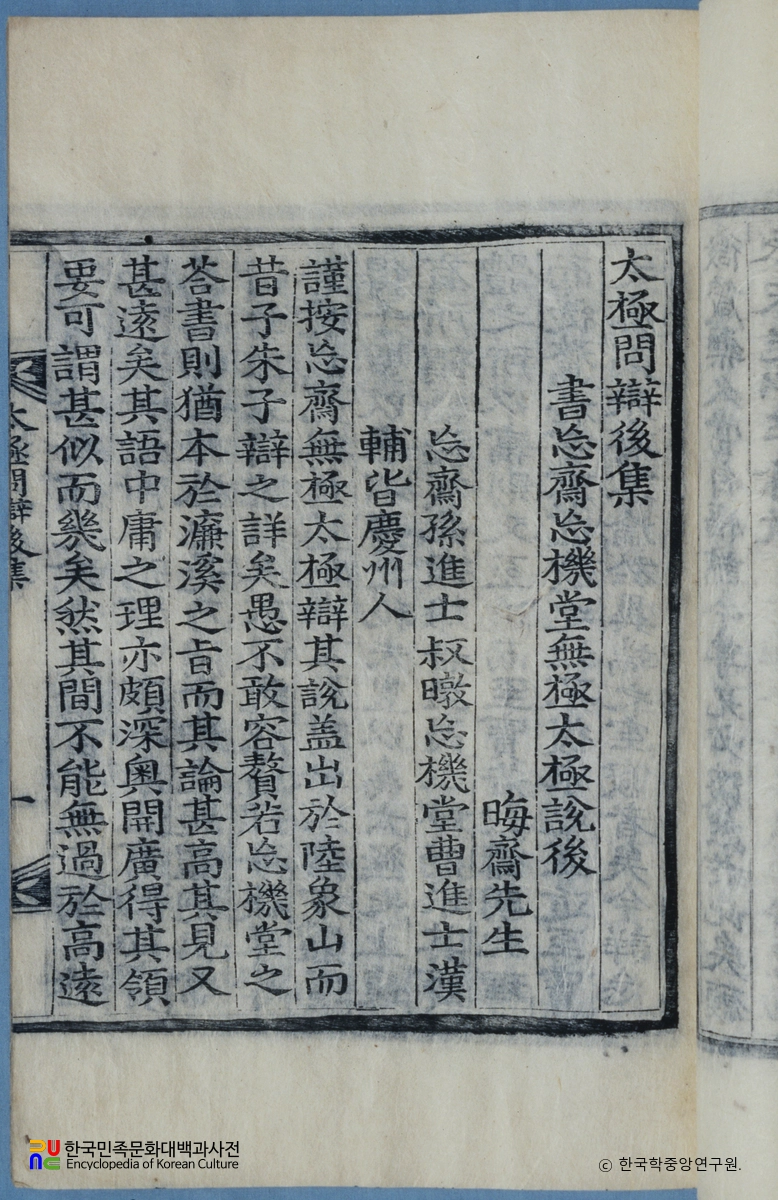 太極問辯後集
書忘齋忘機堂無極太極說後
晦齋先生
忘齋孫進士叔暾忘機堂曹進士漢
輔皆慶州人
謹按忘齋無極太極辯其說盖出於陸象山而
昔子朱子辯之詳矣愚不敢容贅若忘機堂之
荅書則猶本於濂溪之旨而其論甚高其見又
甚遠矣其語中庸之理亦頗深奧開廣得其領
要可謂甚似而幾矣然其間不能無過於高遠
太極問辯後集
一
한국민족문화대백과사전
Encyclopedia of Korean Culture
© 한국학중앙연구원.